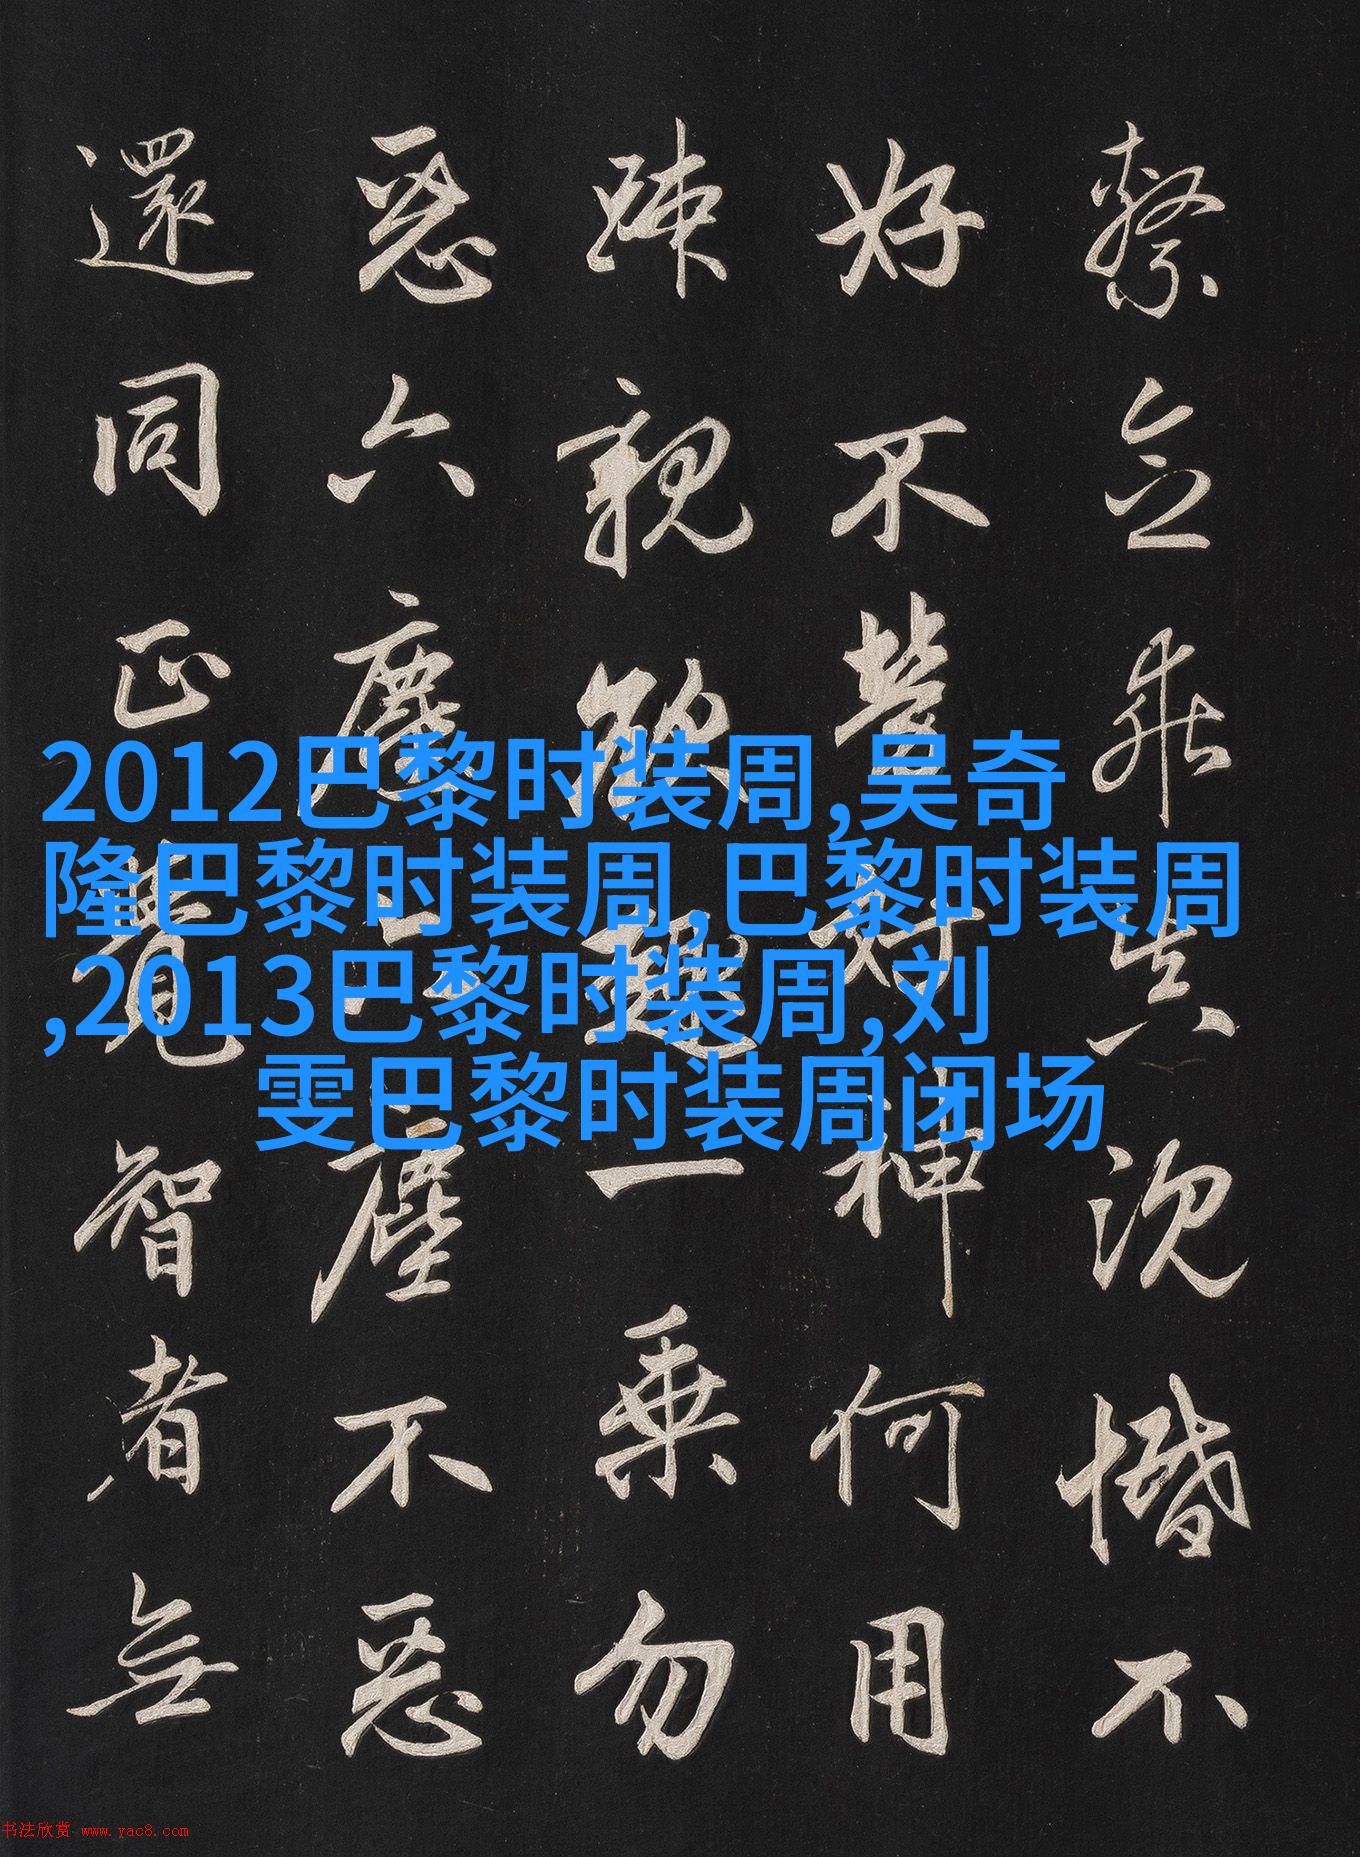 繫念乖真沉惛不
好不神何用
疎親欲趣一乘勿
惡六塵六塵不惡
還同正覺智者無
2012巴黎时装周,吴奇
隆巴黎时装周,巴黎时装周
,2013巴黎时装周,刘
雯巴黎时装周闭场
书法欣赏 www.yac8.com